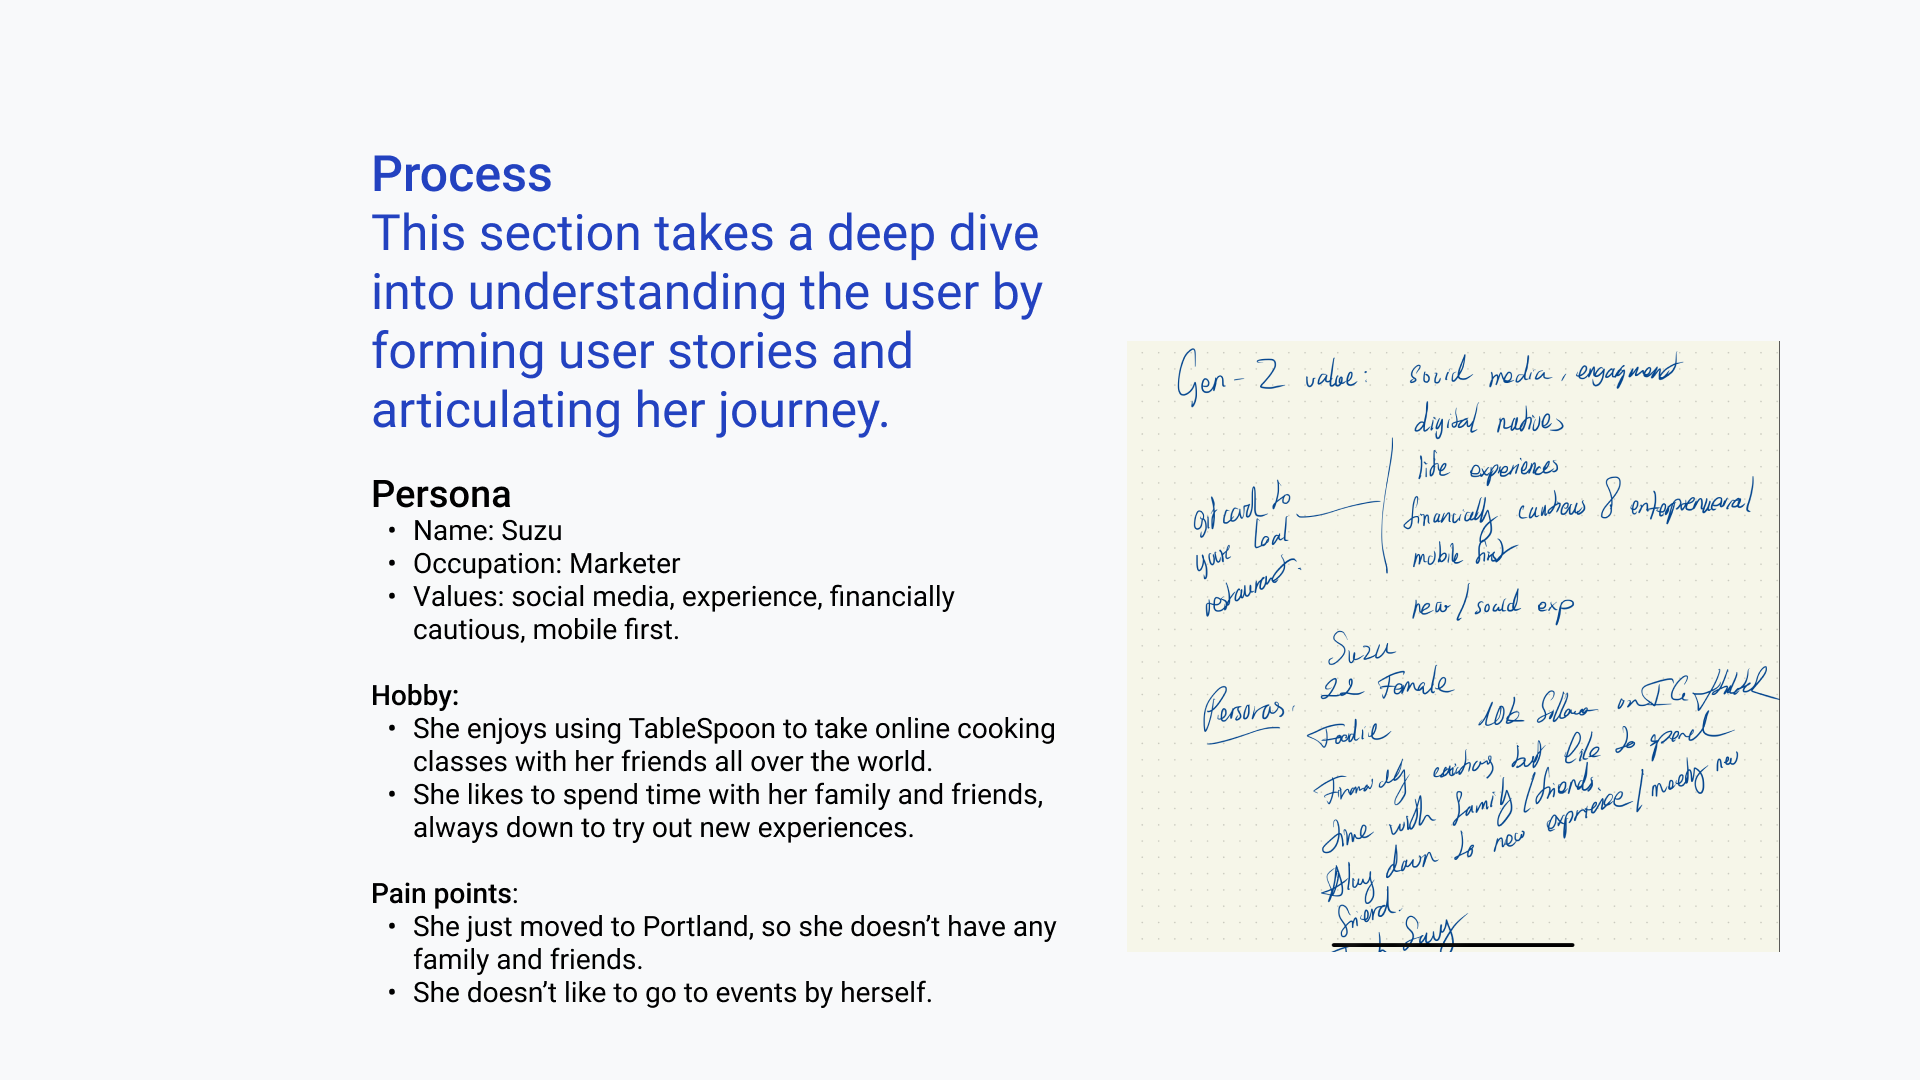 Process
This section takes a deep dive
into understanding the user by
forming user stories and
articulating her journey.
Persona
• Name: Suzu
• Occupation: Marketer
• Values: social media, experience, financially
cautious, mobile first.
Hobby:
• She enjoys using TableSpoon to take online cooking
classes with her friends all over the world.
• She likes to spend time with her family and friends,
always down to try out new experiences.
Pain points:
• She just moved to Portland, so she doesn’t have any
family and friends.
• She doesn’t like to go to events by herself.
Gen-Z value: social media, engagment
digital natives
life experiences
financially cautious & enterprenuerial
mobile first
new/social exp
gift card to
your local
restaurant.
Personas.
Suzu
22 Female
Foodie
10k on IG
Financially cautious but like to spend
time with family/friends.
down to new experience/meeting new
friend.
Savy